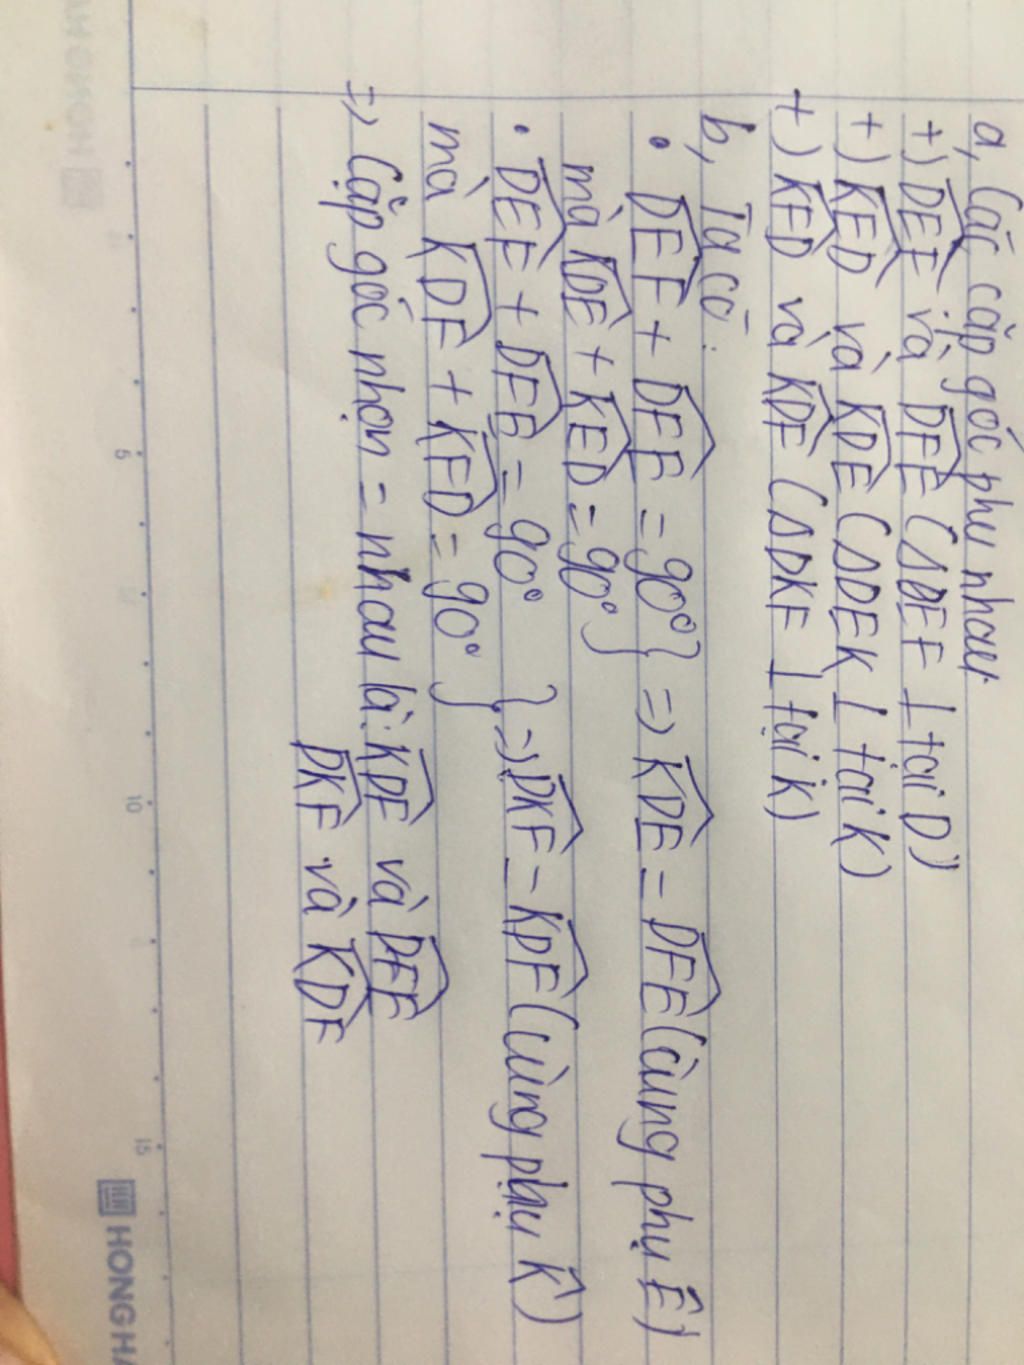 a, Các cặp góc phụ nhau
+) DEF và DFE (ΔDEF ⊥ tại D)
+) KED và KDE (ΔDEK ⊥ tại K)
+) KFD và KDF (ΔDKF ⊥ tại K)
b, Ta có:
• DEF + DFE = 90° } => KDE = DFE (cùng phụ Ê)
mà KDE + KED = 90° }
• DEF + DFE = 90° } => DKF = KDF (cùng phụ K̂)
mà KDF + KFD = 90° }
=> Cặp góc nhọn = nhau là: KDE và DFE
DKF và KDF
HONG HA
5
10
15